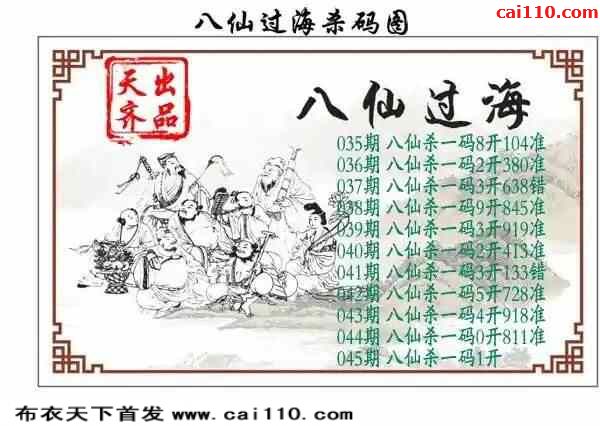 cai110.com
八仙过海杀码图
天齐
出品
八仙过海
035期 八仙杀一码8开104准
036期 八仙杀一码2开380准
037期 八仙杀一码3开638错
038期 八仙杀一码9开845准
039期 八仙杀一码3开919准
040期 八仙杀一码2开413准
041期 八仙杀一码3开133错
042期 八仙杀一码5开728准
043期 八仙杀一码4开918准
044期 八仙杀一码0开811准
045期 八仙杀一码1开
布衣天下首发 www.cai110.com